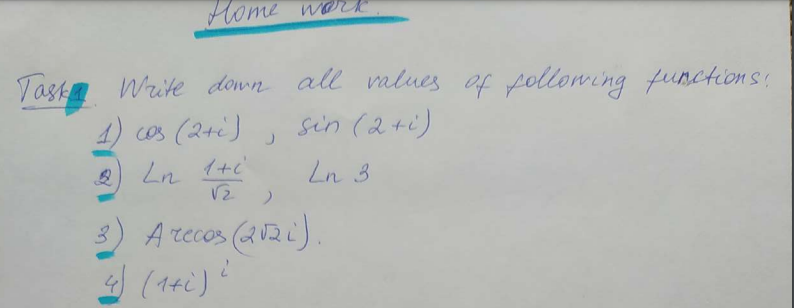 Home work.
Task 1. Write down all values of following functions:
1) cos (2+i), sin (2+i)
2) Ln (1+i)/√2, Ln 3
3) Arccos (2√2i).
4) (1+i)^i